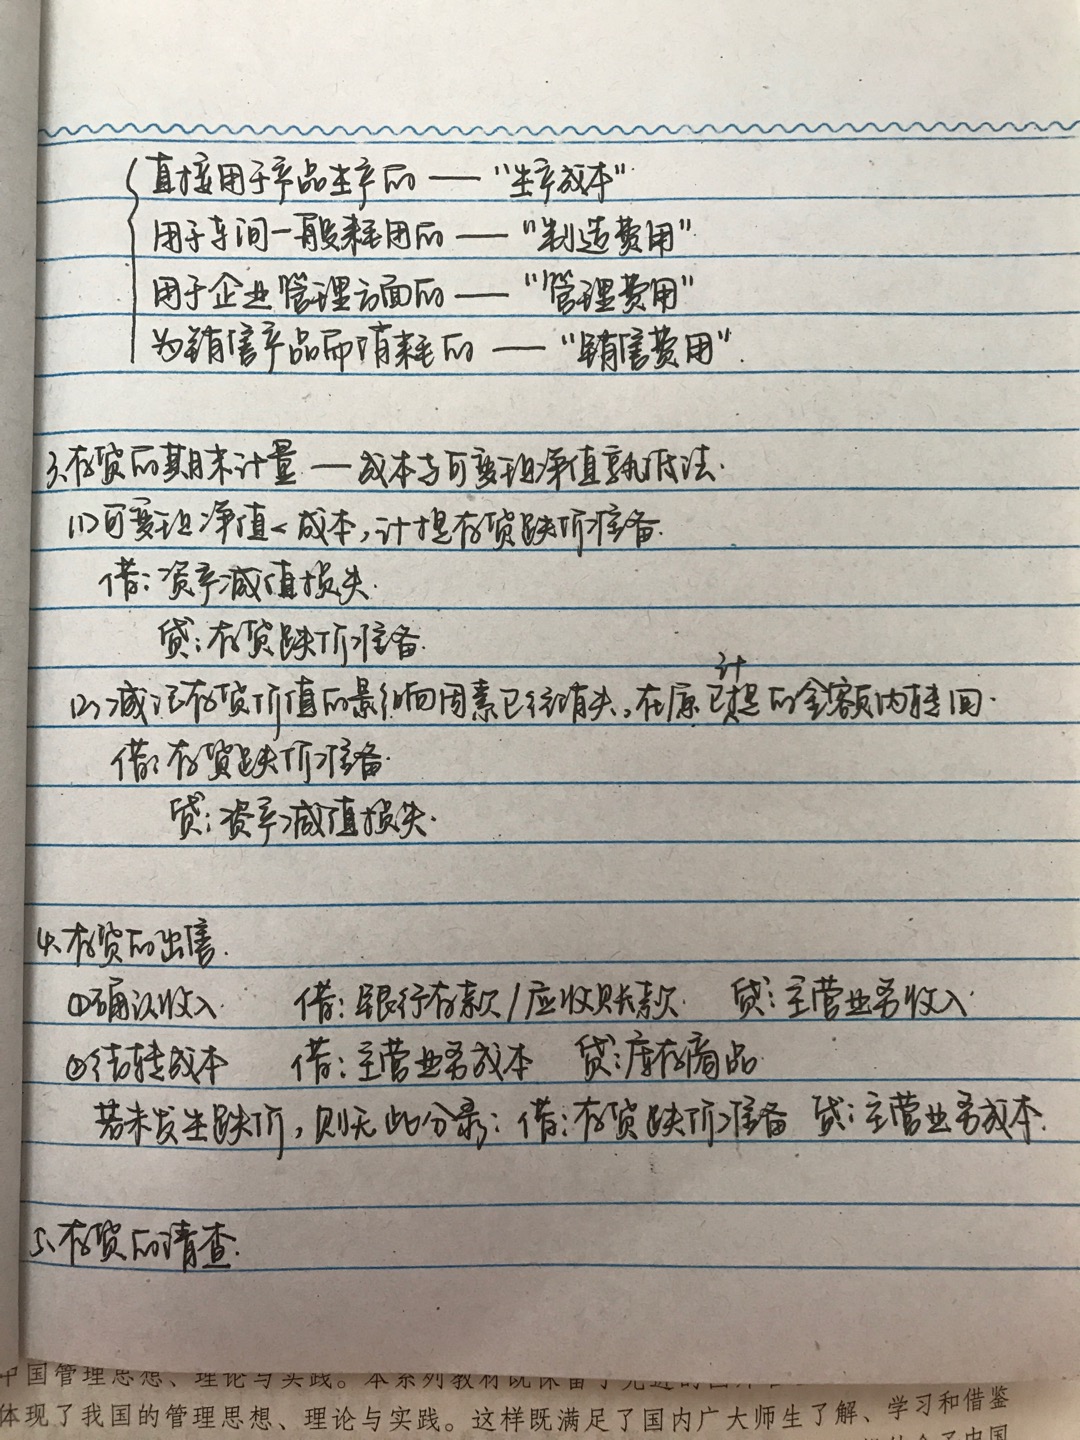 直接用于产品生产的 —— “生产成本”
用于车间一般耗用的 —— “制造费用”
用于企业管理方面的 —— “管理费用”
为销售产品而消耗的 —— “销售费用”.
3、存货的期末计量 —— 成本与可变现净值孰低法.
(1)可变现净值<成本,计提存货跌价准备.
借:资产减值损失.
贷:存货跌价准备.
(2)减记存货价值的影响因素已经消失,在原已计提的金额内转回.
借:存货跌价准备.
贷:资产减值损失.
4、存货的出售.
①确认收入 借:银行存款/应收账款 贷:主营业务收入.
②结转成本 借:主营业务成本 贷:库存商品
若未发生跌价,则无此分录:借:存货跌价准备 贷:主营业务成本.
5、存货的清查.
中国管理思想、理论与实践。本系列教材既保留了先进的
体现了我国的管理思想、理论与实践。这样既满足了国内广大师生了解、学习和借鉴